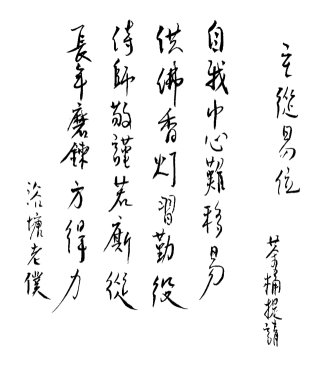 主從易位
某桶提請
自我中心難移易
供佛香灯習勤役
侍師敬謹若廝從
長年磨鍊方得力
洛塘老僕